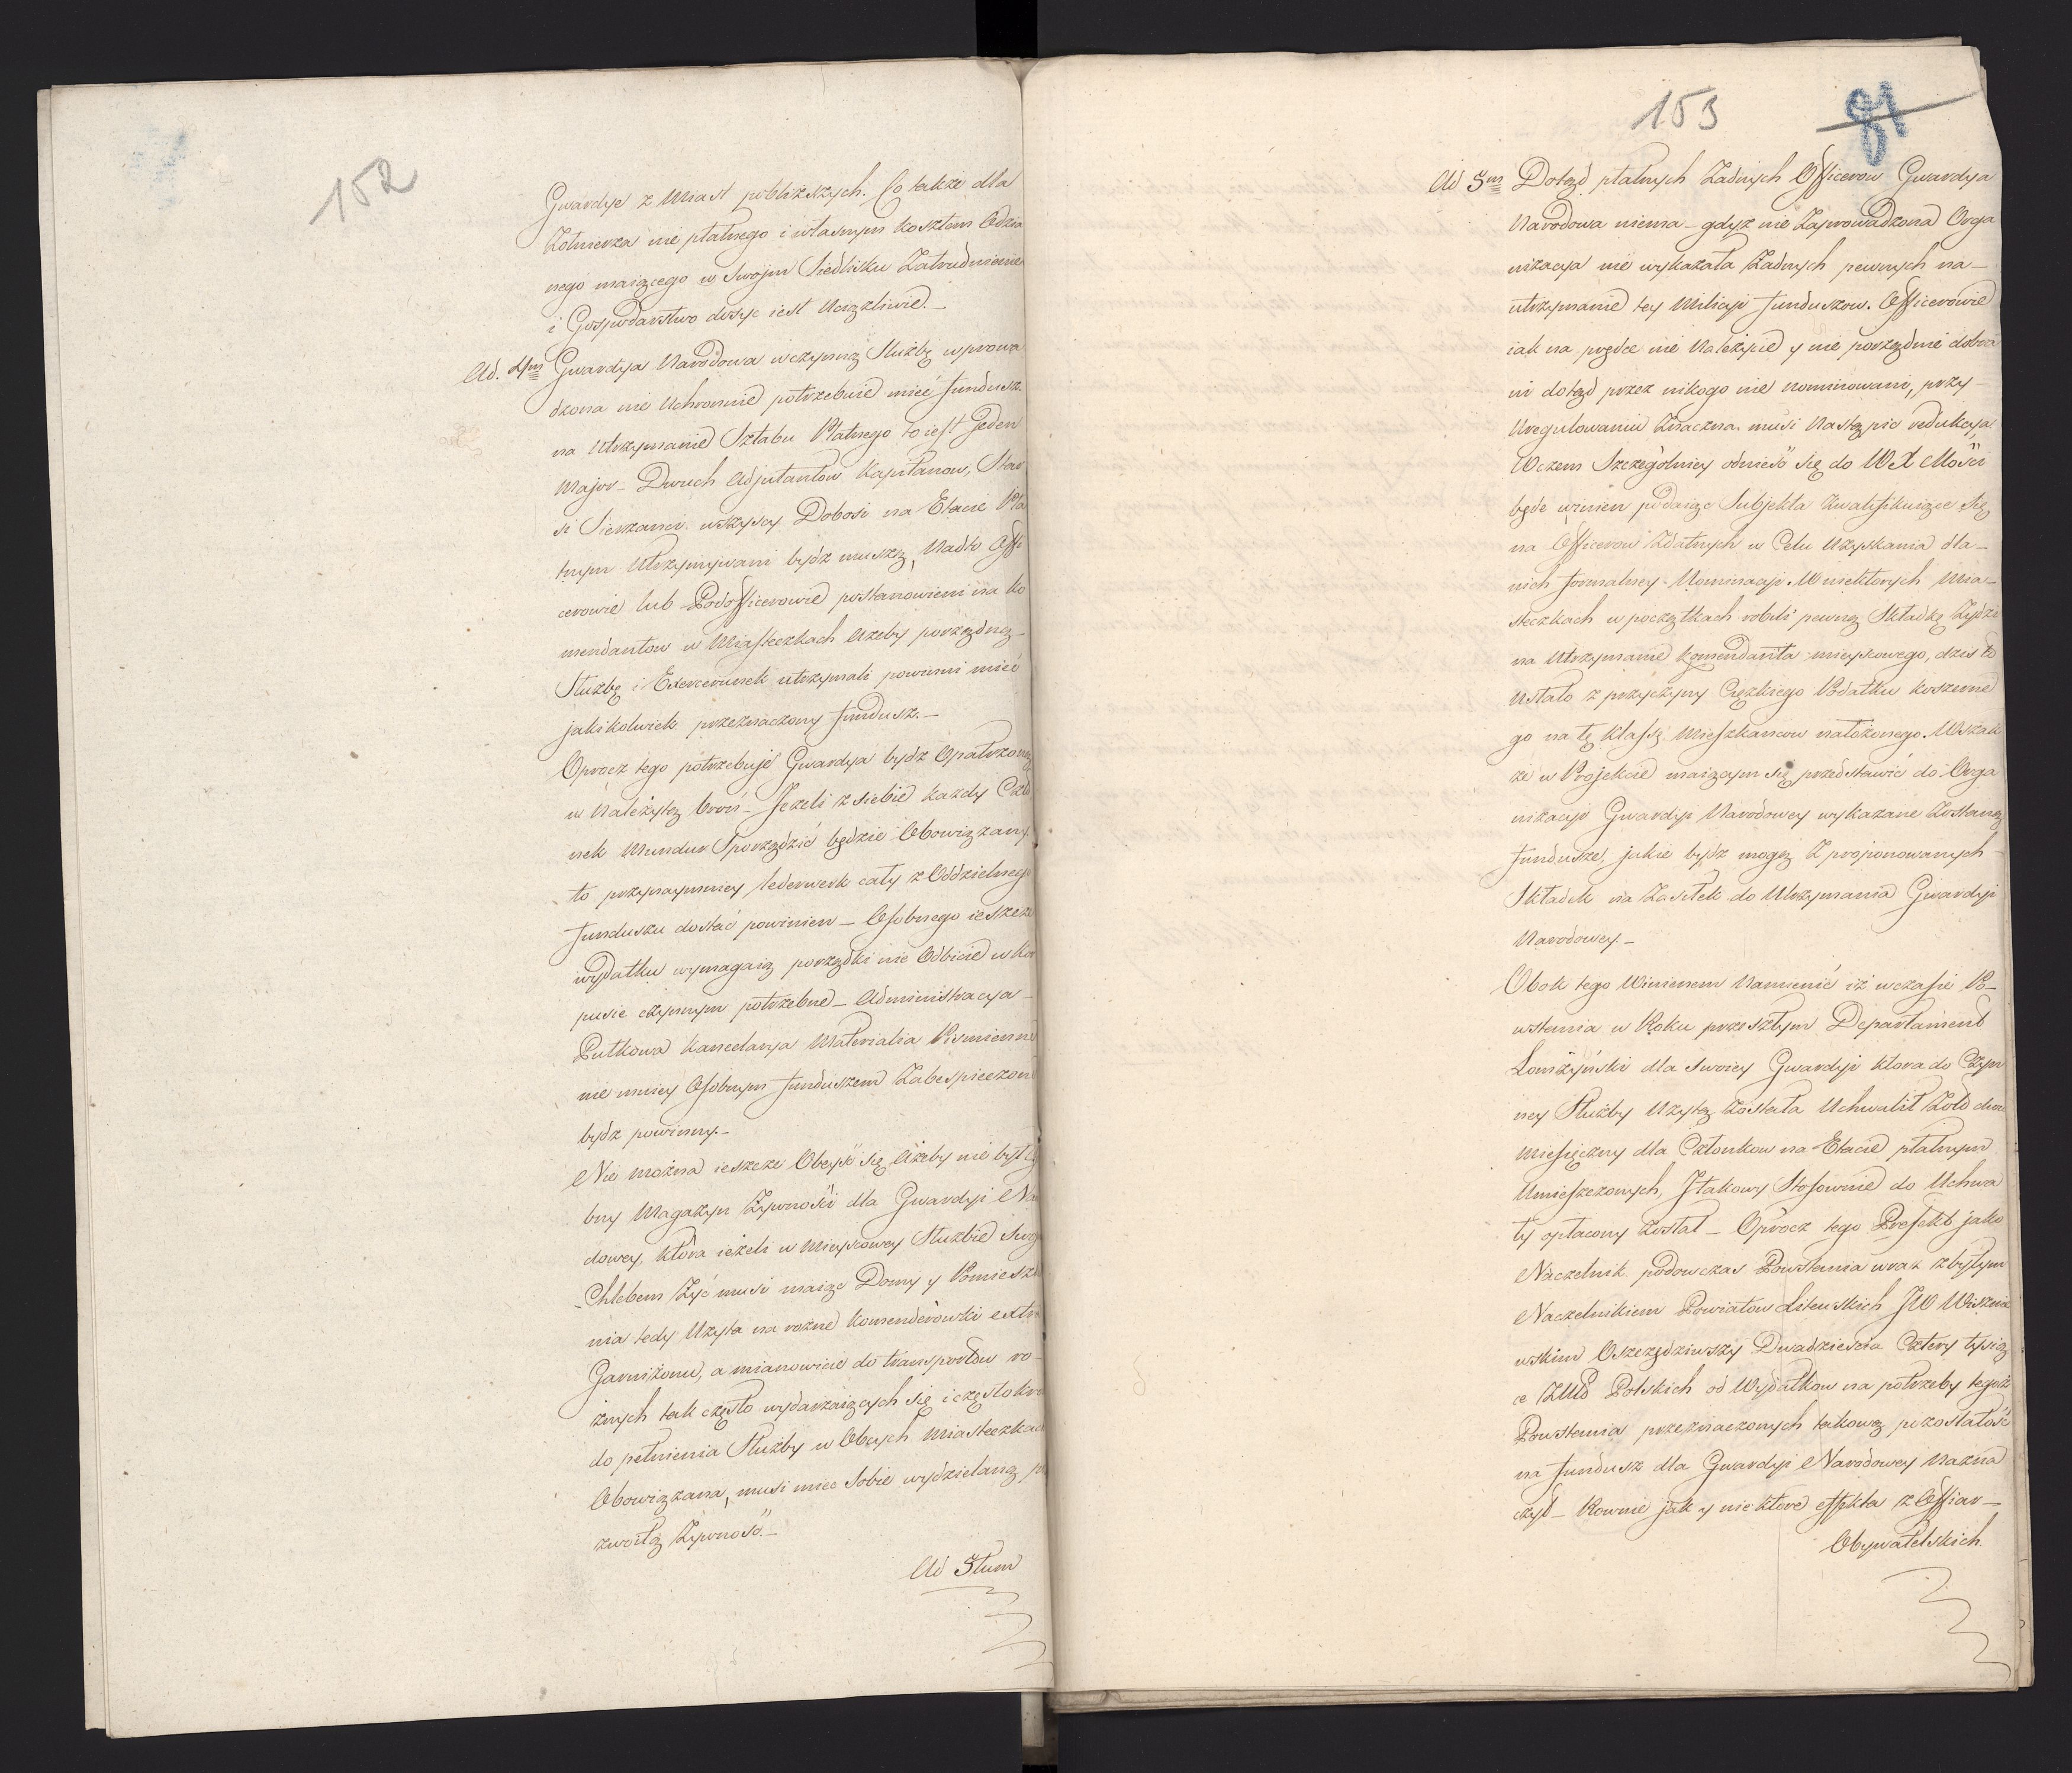 152
Gwardye z Miast pobliższych. Co także dla
Żołnierza nie płatnego i własnym kosztem Odzia
nego maiącego w Swojm Siedlisku Zatrudnienie
i Gospodarstwo dosyc iest Uciążliwie. –
Ad. 4m Gwardya Narodowa wczynną Służbę wprowa
dzona nie Uchronnie potrzebuie mieć fundusz
na Utrzymanie Sztabu Płatnego to iest Jeden
Major – Dwuch Adjutantow Kapitanow, Star
si Sierzanci wszyscy Dobosi na Etacie Pła
tnym Utrzymywani bydz muszą, Nadto Offi
cerowie lub Podofficerowie postanowieni na Ko
mendantow w Miasteczkach Ażeby porządną –
Służbę i Exercerunek utrzymali powinni mieć
jakikolwiek przeznaczony fundusz. –
Oprocz tego potrzebuje Gwardya bydz Opatrzoną
w Należytą broń – Jezeli z siebie każdy Czło
nek Mundur Sporządzić będzie Obowiązany
to przynaymniey lederwerk cały z Oddzielnego
funduszu dostać powinien – Osobnego ieszcze
wydatku wymagaią porządki nie Odbicie w Kor
pusie czynnym potrzebne – Administracya –
Pułkowa Kancelarya Materialia Pismienne
nie mniey Osobnym funduszem Zabespieczone
bydz powinny. –
Nie można ieszcze Obeyść się Ażeby nie był Oso
bny Magazyn Żywności dla Gwardyi Naro
dowey, która ieżeli w Mieyscowey Służbie Swoim
Chlebem Żyć musi maiąc Domy y Pomieszka
nia tedy Użyta na rożne Komenderowki extra
Garnizonu, a mianowicie do transportow ro –
żnych tak często wydarzaiących się i częstokroć
do pełnienia Służby w Obcych Miasteczkach
Obowiązana, musi miec Sobie wydzielaną przy
zwoitą Żywność. –
Ad 5tum
153
81
Ad 5m Dotąd płatnych Żadnych Officerow Gwardya
Narodowa niema – gdyż nie Zaprowadzona Orga
nizacya nie wykazała Żadnych pewnych na –
utrzymanie tey Milicyi funduszow. Officerowie
iak na prędce nie Należycie y nie porządnie dobra
ni dotąd przez nikogo nie nominowani, przy –
Uregulowaniu Znaczna musi Nastąpic redukcya
Wczem Szczególniey odnieść się do WX Mości
będe winien podaiąc Subjekta kwalifikuiące się
na Officerow Zdatnych w Celu Uzyskania dla –
nich formalney Nominacyi. W niektorych Mia –
steczkach w początkach robili pewną Składkę Żydzi
na Utrzymanie Komendanta mieyscowego, dzis to
Ustało z przyczyny Cięzkiego Podatku Koszerne
go na tę Klassę Mieszkancow nałożonego. Wszak
że w Projekcie maiącym się przedstawić do Orga
nizacyi Gwardyi Narodowey wykazane Zostaną
fundusze, jakie bydz mogą Z proponowanych –
Składek na Zasiłek do Utrzymania Gwardyi
Narodowey. –
Obok tego Winienem Namienić iż wczasie Po –
wstania w Roku przeszłym Departament
Łomżyński dla Swoiey Gwardyi ktora do Czyn
ney Służby Użytą Została Uchwalił Żołd dwu
Miesięczny dla Członkow na Etacie płatnym
Umieszczonych, Jtakowy Stosownie do Uchwa
ły opłacony Został – Oprocz tego Prefekt jako
Naczelnik podowczas Powstania wraz z byłym
Naczelnikiem Powiatow Litewskich JW Wisznie
wskim Oszczędziwszy Dwadzieścia Cztery tysią
ce Złłt Polskich od Wydatkow na potrzeby tegoż
Powstania przeznaczonych takową pozostałość
na fundusz dla Gwardyi Narodowey Nazna
czył – Rownie jak y nie ktore effekta z Offiar –
Obywatelskich.